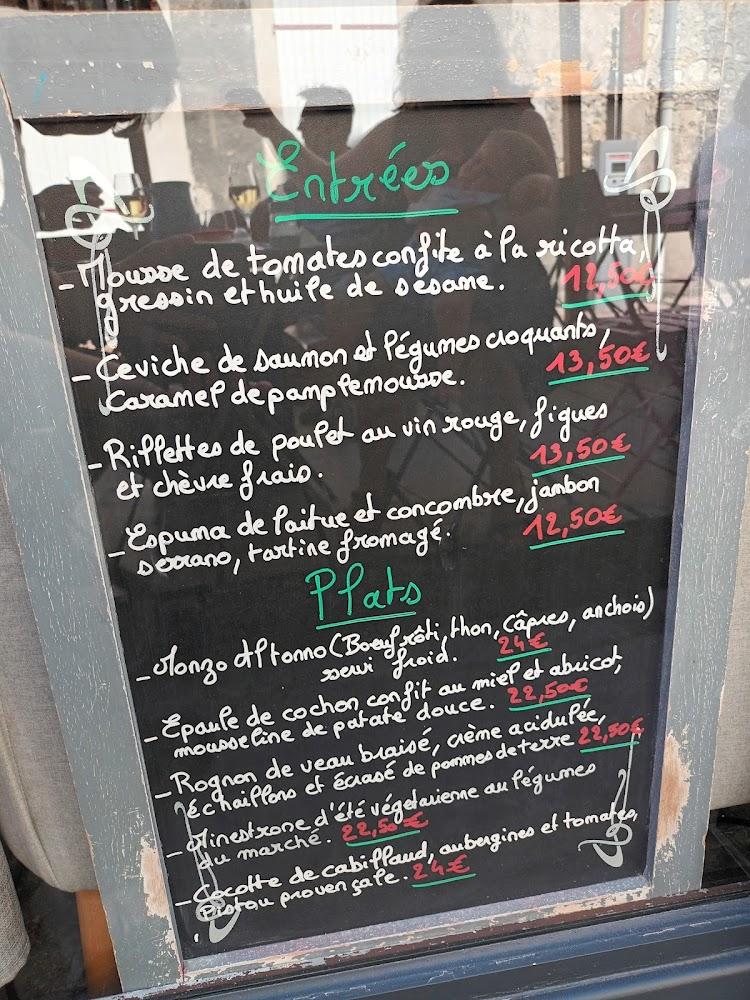 Entrées
- Mousse de tomates confite à la ricotta,
gressin et huile de sésame. 12,50€
- Ceviche de saumon et légumes croquants,
caramel de pamplemousse. 13,50€
- Rillettes de poulet au vin rouge, figues
et chèvre frais. 13,50€
- Espuma de laitue et concombre, jambon
serrano, tartine fromagé. 12,50€
Plats
- Monzo Al tonno (Boeuf rôti, thon, câpres, anchois)
servi froid. 24€
- Epaule de cochon confit au miel et abricot,
mousseline de patate douce. 22,50€
- Rognon de veau braisé, crème acidulée,
échaillons et écrasé de pommes de terre 22,50€
- Minestrone d'été végétarienne au légumes
du marché. 22,50€
- Cocotte de cabillaud, aubergines et tomates,
pistou provençale. 24€